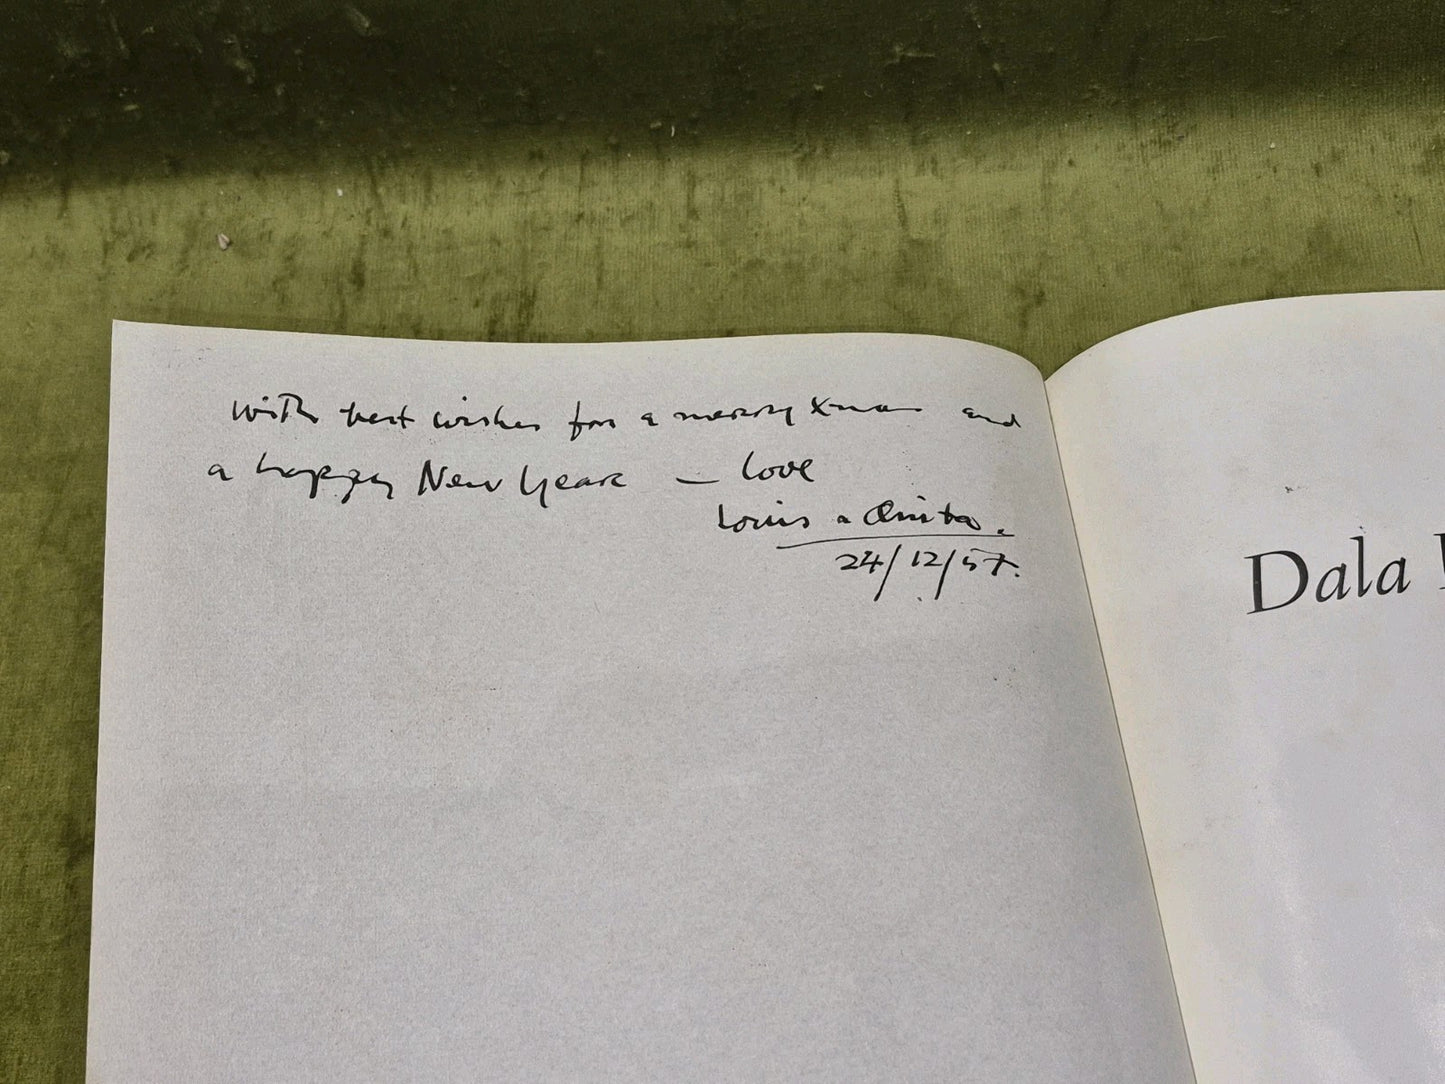 with best wishes for a merry Xmas and
a happy New Year — love
Louis & Anita.
24/12/57.
Dala